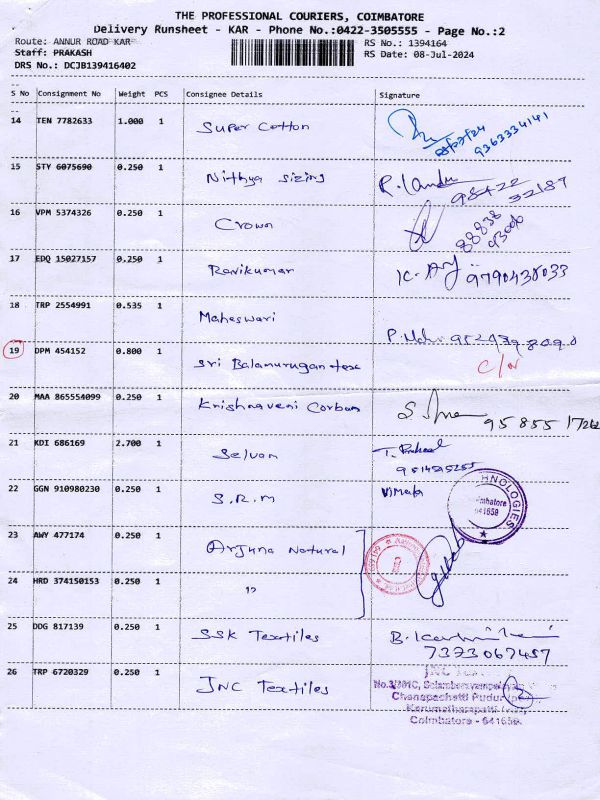 THE PROFESSIONAL COURIERS, COIMBATORE
Delivery Runsheet - KAR - Phone No.:0422-3505555 - Page No.:2
Route: ANNUR ROAD KAR
RS No.: 1394164
Staff: PRAKASH
RS Date: 08-Jul-2024
DRS No.: DCJB139416402
S No Consignment No Weight PCS Consignee Details Signature
14 TEN 7782633 1.000 1 Super Cotton 9363334141
15 STY 6075690 0.250 1 Nithya Sizing 98422 32189
16 VPM 5374326 0.250 1 Crown 88838
17 EDQ 15027157 0.250 1 Ravikumar 9790438033
18 TRP 2554991 0.535 1 Maheswari
19 DPM 454152 0.800 1 Sri Balamurugan texx
20 MAA 865554099 0.250 1 Krishnaveni Corbun
21 KDI 686169 2.700 1 Selvam
22 GGN 910980230 0.250 1 S.R.M Vimala
23 AWY 477174 0.250 1 Arjuna Natural
24 HRD 374150153 0.250 1 "
25 DDG 817139 0.250 1 SSK Textiles
7373067457
26 TRP 6720329 0.250 1 JNC Textiles
Coimbatore - 641659.